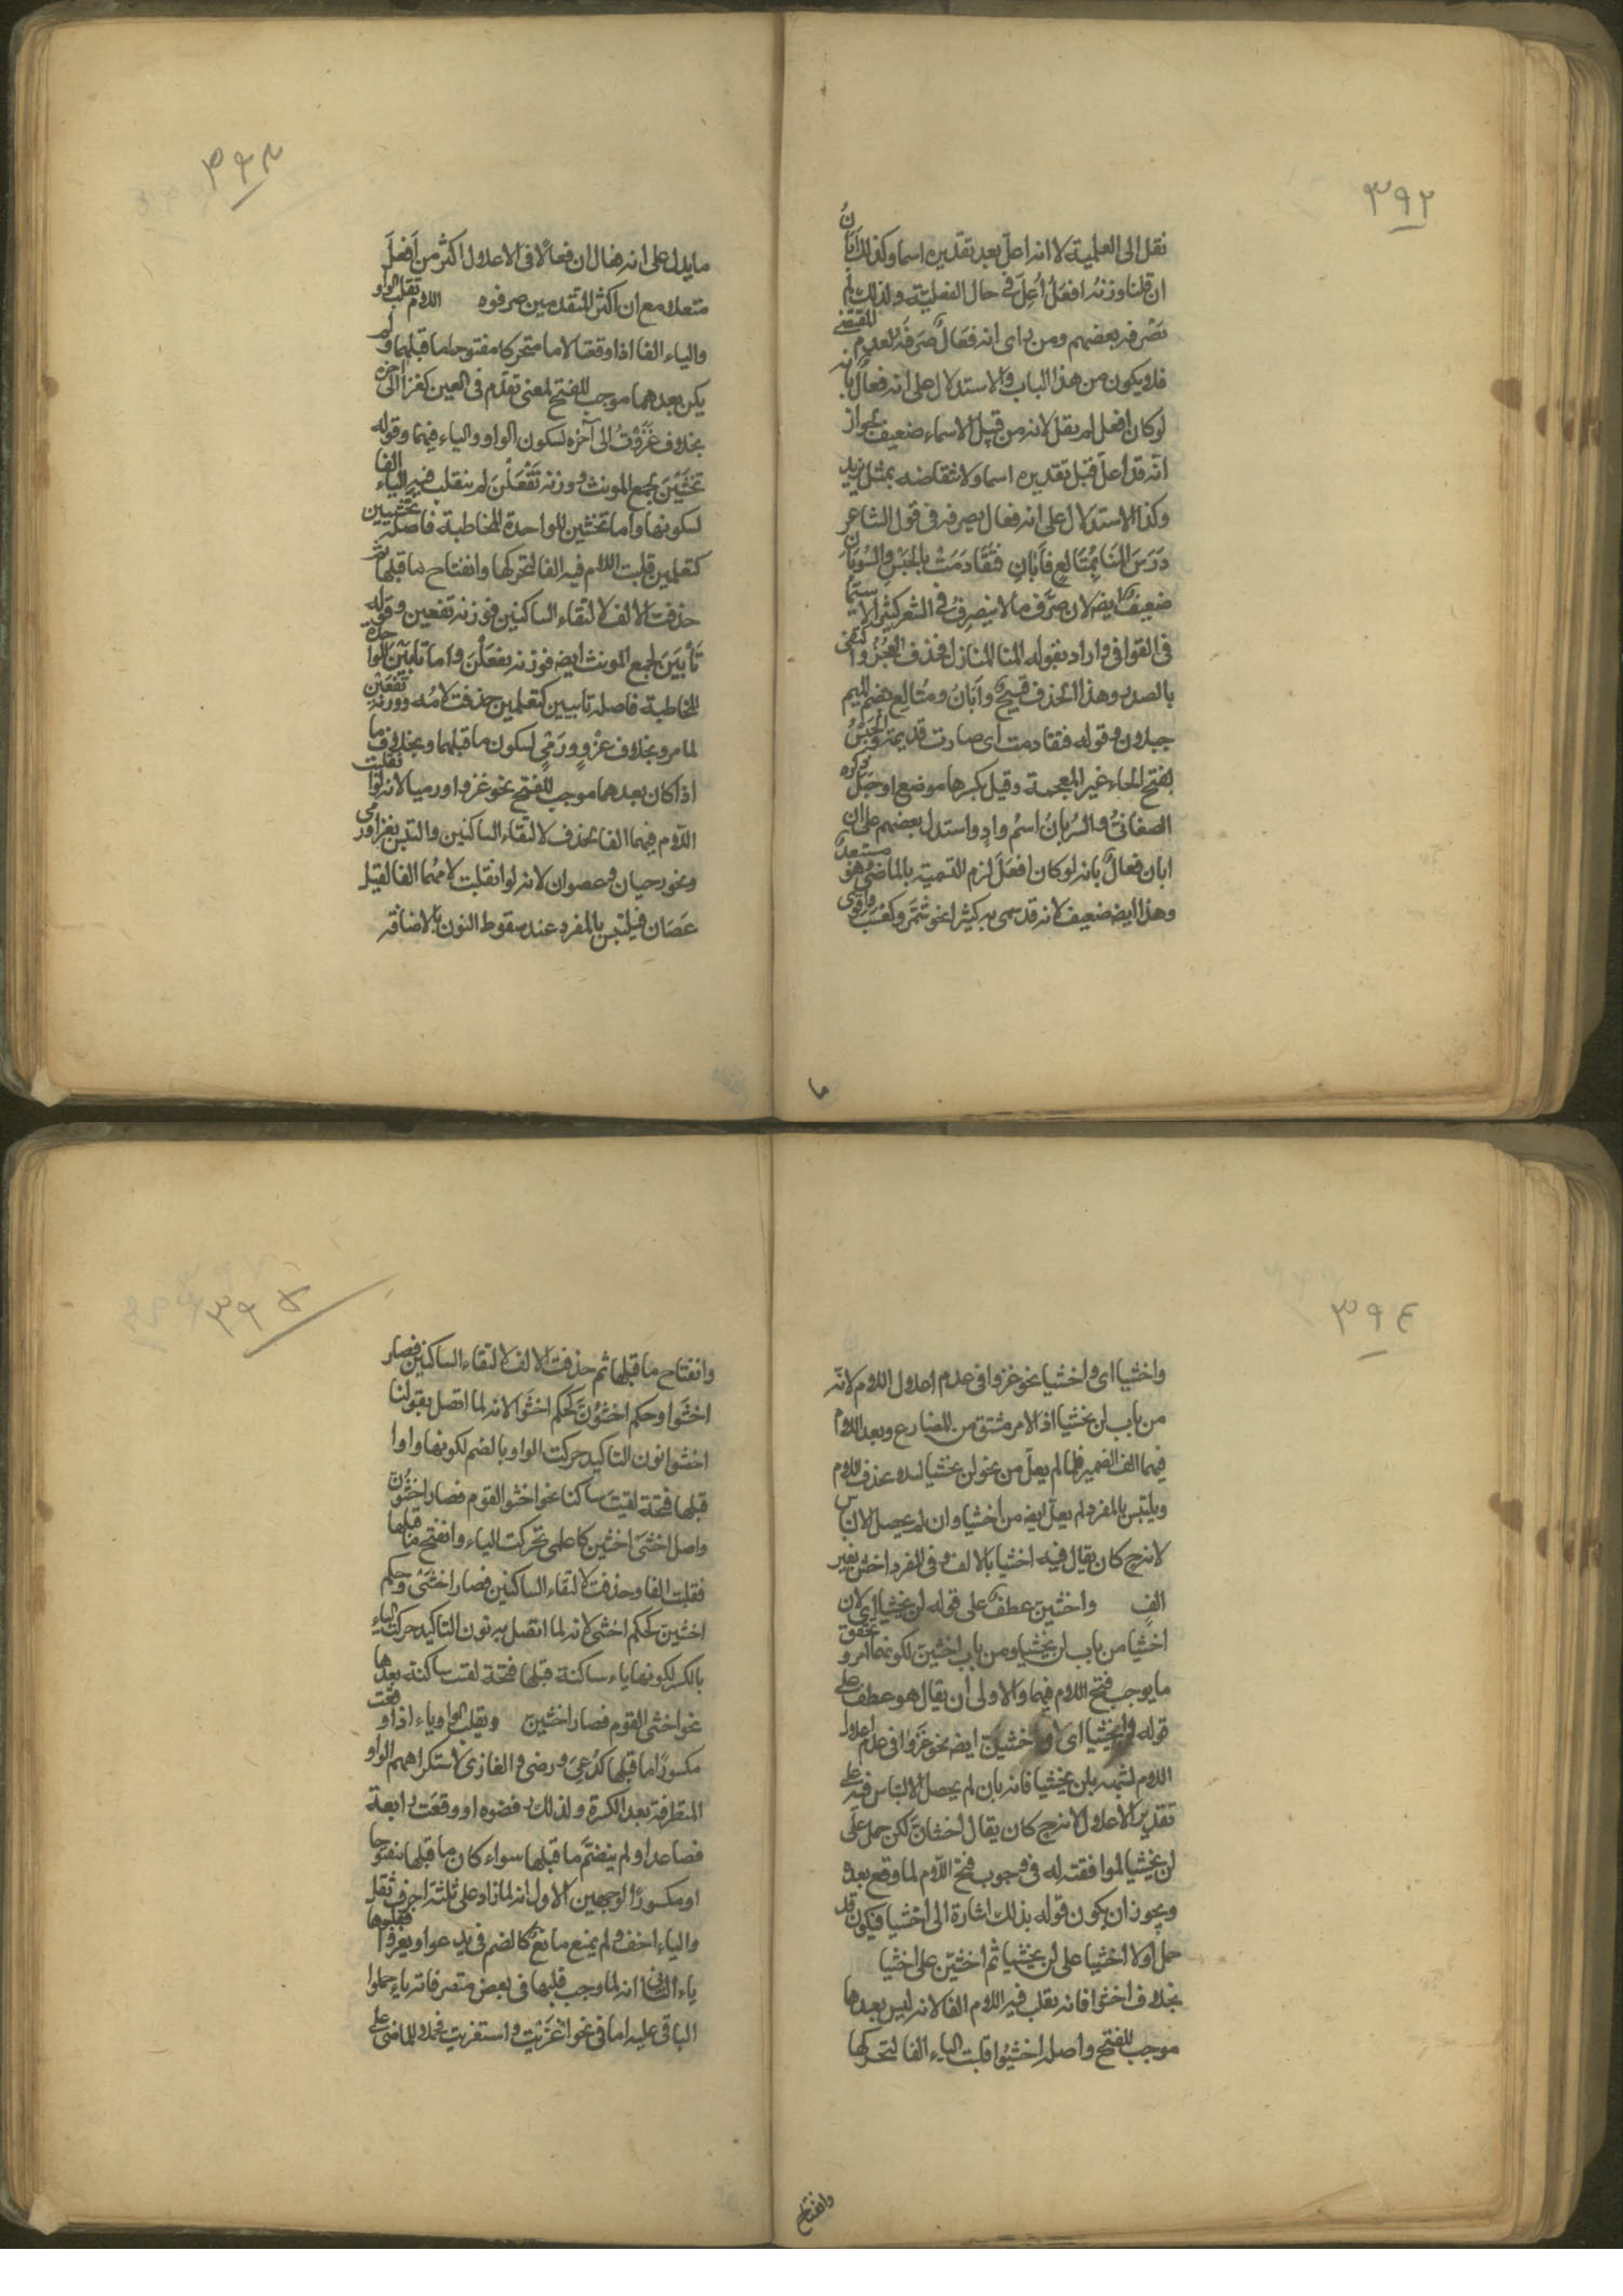 ٣٩٢
نقل الى العلمية لا انه اعل بعد تقديره اسما وكذلك أبانُ
ان قلنا وزنه افعَلُ اُعِلّ فى حال الفعلية ولذلك لم
يَصْرفه بعضهم ومن راى انه فعَالٌ صَرَفَه لعدم المقتضى
فلا يكون من هذا الباب والاستدلال على انه فعالٌ بانه
لو كان افعل لم يقل لانه من قبيل الاسماء ضعيف لجواز
انه قد اعلّ قبل تقديره اسما ولانتقاضه بمثل يزيد
وكذا الاستدلال على انه فعال بصرفه فى قول الشاعر
دَرَسَ المَنَا بِمُتَالِعٍ فَأَبَانِ فتَقَادَمَتْ بالحَبْسِ والسُّوبَانِ
ضعيفٌ ايضا لان صرف ما لا ينصرف فى الشعر كثير لا سيَّما
فى القوافى واراد بقوله المنا المنازل فحذف العَجُزَ واكتفى
بالصدر وهذا الحذف قبيحٌ وأبانُ ومُتالِع بضم الميم
جبلان وقوله فتقادمت اى صارت قديمة والحَبْسُ
بفتح الحاء غير المعجمة وقيل بكسرها موضع او جبل ذكره
الصغانىُّ والسُّوبانُ اسمُ وادٍ واستدل بعضهم على ان
ابان فعالٌ بانه لو كان افعَلَ لزم التسمية بالماضى وهو مستبعدٌ
وهذا ايضا ضعيف لانه قد سمى به كثيرا نحو شَمَّر وكَعْسَبَ واقوى
ما
٣٩٣
ما يدل على انه فعال ان فعالًا فى الاعلام اكثر من أفعلَ
منقولا مع ان اكثر المتقدمين صرفوه اللام تقلب الواو
والياء الفا اذا وقعتا لاما متحركا مفتوحا ما قبلهما ولم
يكن بعدهما موجب للفتح لمعنى تقدّم فى العين كغزا الى آخره
بخلاف غَزَوْتُ الى آخره لسكون الواو والياء فيهما وقوله
تَخْشَيْنَ لجمع المونث ووزنه تَفْعَلْنَ لم ينقلب فيه الياء الفا
لسكونها واما تخشين للواحدة المخاطبة فاصله تخشيين
كتعلمين قلبت اللام فيه الفا لتحركها وانفتاح ما قبلها ثم
حذفت الالف لالتقاء الساكنين فوزنه تفعين وقوله
تأبَيْنَ لجمع المونث ايضا فوزنه تفعَلْنَ واما تأبين للواحدة
المخاطبة فاصله تابيين كتعلمين حذفت لامُه ووزنه تفعَيْن
لما مر وبخلاف غَزْوٍ ورَمْيٍ لسكون ما قبلهما وبخلاف ما
اذا كان بعدهما موجب للفتح نحو غزوا ورميا لانه لو انقلبت
اللام فيهما الفا تحذف لالتقاء الساكنين والتبس بغزا ورمى
ونحو رحيان وعصوان لانه لو انقلبت لامُهما الفا لقيل
عَصَان فيلتبس بالمفرد عند سقوط النون بالاضافة
٣٩٤
واخشيا اى واخشيا نحو غزوا فى عدم اعلال اللام لانه
من باب لن يخشيا اذ الامر مشتق من المضارع وبعد اللام
فيهما الف الضمير فلما لم يعلّ من نحو لن يخشيا لئلا يحذف اللام
ويلتبس بالمفرد لم يعلّ ايضا من اخشيا وان لم يحصل الالتباس
لانه ح كان يقال فيه اخشيا بالالف وفى المفرد اخش بغير
الفٍ واخشينّ عطفٌ على قوله لن يخشيا اى لان
اخشيا من باب لن يخشيا ومن باب اخشينّ لكونهما امر وتحقق
ما يوجب فتح اللام فيهما والاولى ان يقال هو عطف على
قوله واخشيا اى لا واخشينّ ايضا نحو غَزَوا فى عدم اعلال
اللام لشبهه بلن يخشيا فانه بان لم يحصل الالتباس فيه على
تقدير الاعلال لانه ح كان يقال اخشانّ لكن حمل على
لن يخشيا لموافقته له فى وجوب فتح اللام لما وقع بعده
ويجوز ان يكون قوله بذلك اشارة الى اخشيا فيكون قد
حمل اولا اخشيا على لن يخشيا ثم اخشينّ على اخشيا
بخلاف اخشوا فانه يقلب فيه اللام الفا لانه ليس بعدها
موجب للفتح واصله اخشيُوا قلبت الياء الفا لتحركها
وانفتاح
٣٩٥
وانفتاح ما قبلها ثم حذفت الالف لالتقاء الساكنين فصار
اخشَوا وحكم اخشَوُنَّ كحكم اخشَوا لانه لما اتصل بقولنا
اخشوا نون التاكيد حركت الواو بالضم لكونها واوا
قبلها فتحة لقيت ساكنا نحو اخشوا القوم فصار اخشوُنَّ
واصل اخشَى اخشيى كاعلمى تحركت الياء وانفتح ما قبلها
فقلبت الفا وحذفت لالتقاء الساكنين فصار اخشَىْ وحكم
اخشينّ كحكم اخشى لانه لما اتصل به نون التاكيد حركت الياء
بالكسر لكونها ياء ساكنة قبلها فتحة لقيت ساكنة بعدها
نحو اخشى القوم فصار اخشينّ وتقلب الواو ياء اذا وقعت
مكسورًا ما قبلها كدُعِىَ ورضى والغازى لاستكراههم الواو
المتطرفة بعد الكسرة ولذلك رفضوه او وقعت رابعة
فصاعدا ولم ينضمّ ما قبلها سواء كان ما قبلها مفتوحا
او مكسورًا لوجهين الاول انه لما زاد على ثلثة احرف ثقل
والياء اخف ولم يمنع مانعٌ كالضم فى يدعو او يغزو فقلبوها
ياء الثانى انه لما وجب قلبها فى بعض متصرفاته ياء حملوا
الباقى عليه اما فى نحو اغزَيْت واستغزيت فحملا للماضى على